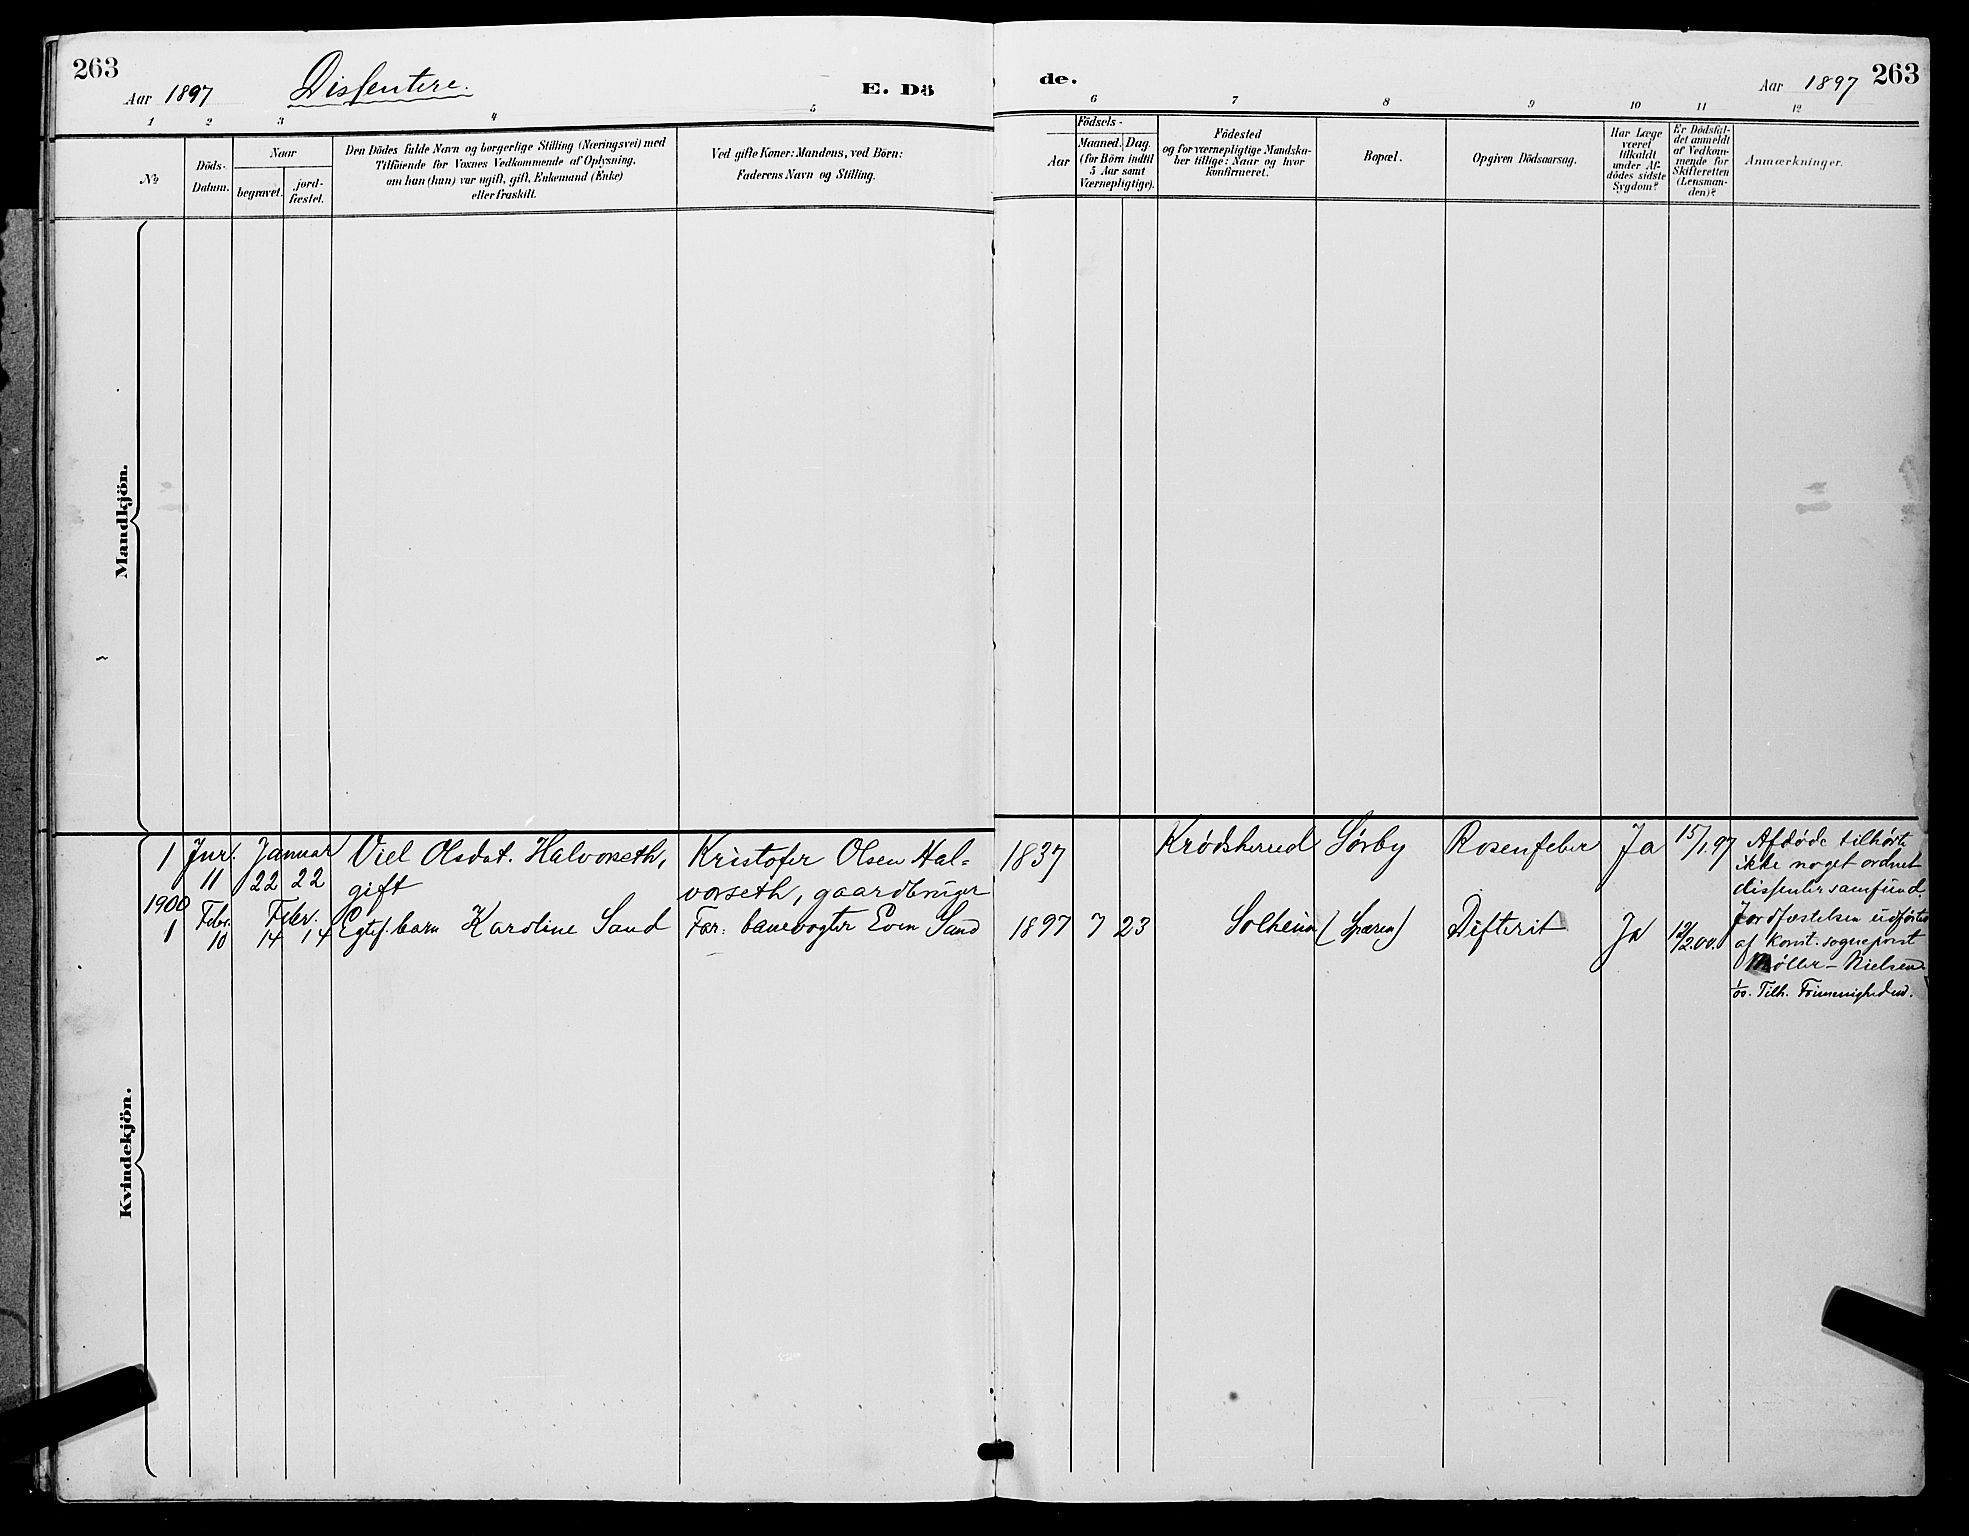 263
Aar 1897 Dissentere. E. Dö
1 2 3 4 5
No
Döds-
Datum.
Naar
begravet.
jord-
fæstet.
Den Dödes fulde Navn og borgerlige Stilling (Næringsvei) med
Tilföiende for Voxnes Vedkommende af Oplysning,
om han (hun) var ugift, gift, Enkemand (Enke)
eller fraskilt.
Ved gifte Koner: Mandens, ved Börn:
Faderens Navn og Stilling.
Mandkjön.
1 Jnr. Januar Viel Olsdat. Halvorseth, Kristofer Olsen Hal-
11 22 22 gift vorseth, gaardbruger
1900 Febr. Febr. Egtef. barn Karoline Sand Far: banevogter Even Sand
1 10 14 14
Kvindekjön.
de. Aar 1897 263
6 7 8 9 10 11 12
Aar
Födsels-
Maaned. Dag.
(for Börn indtil
5 Aar samt
Værnepligtige).
Födested
og for værnepligtige Mandska-
ber tillige: Naar og hvor
konfirmeret.
Bopæl.
Opgiven Dödsaarsag.
Har Læge
været
tilkaldt
under Af-
dödes sidste
Sygdom?
Er Dödsfal-
det anmeldt
af Vedkom-
mende for
Skifteretten
(Lensman-
den)?
Anmærkninger.
1837 Krødsherred Sørby Rosenfeber Ja 15/1.97
1897 7 23 Solheim (Snaren) Difterit Ja 12/2.00.
Afdøde tilhørte
ikke noget ordnet
dissentersamfund.
Jordfæstelsen udførtes
af konst. sogneprest
Møller-Nielsen.
1/00. Tilh. Frimenigheden.